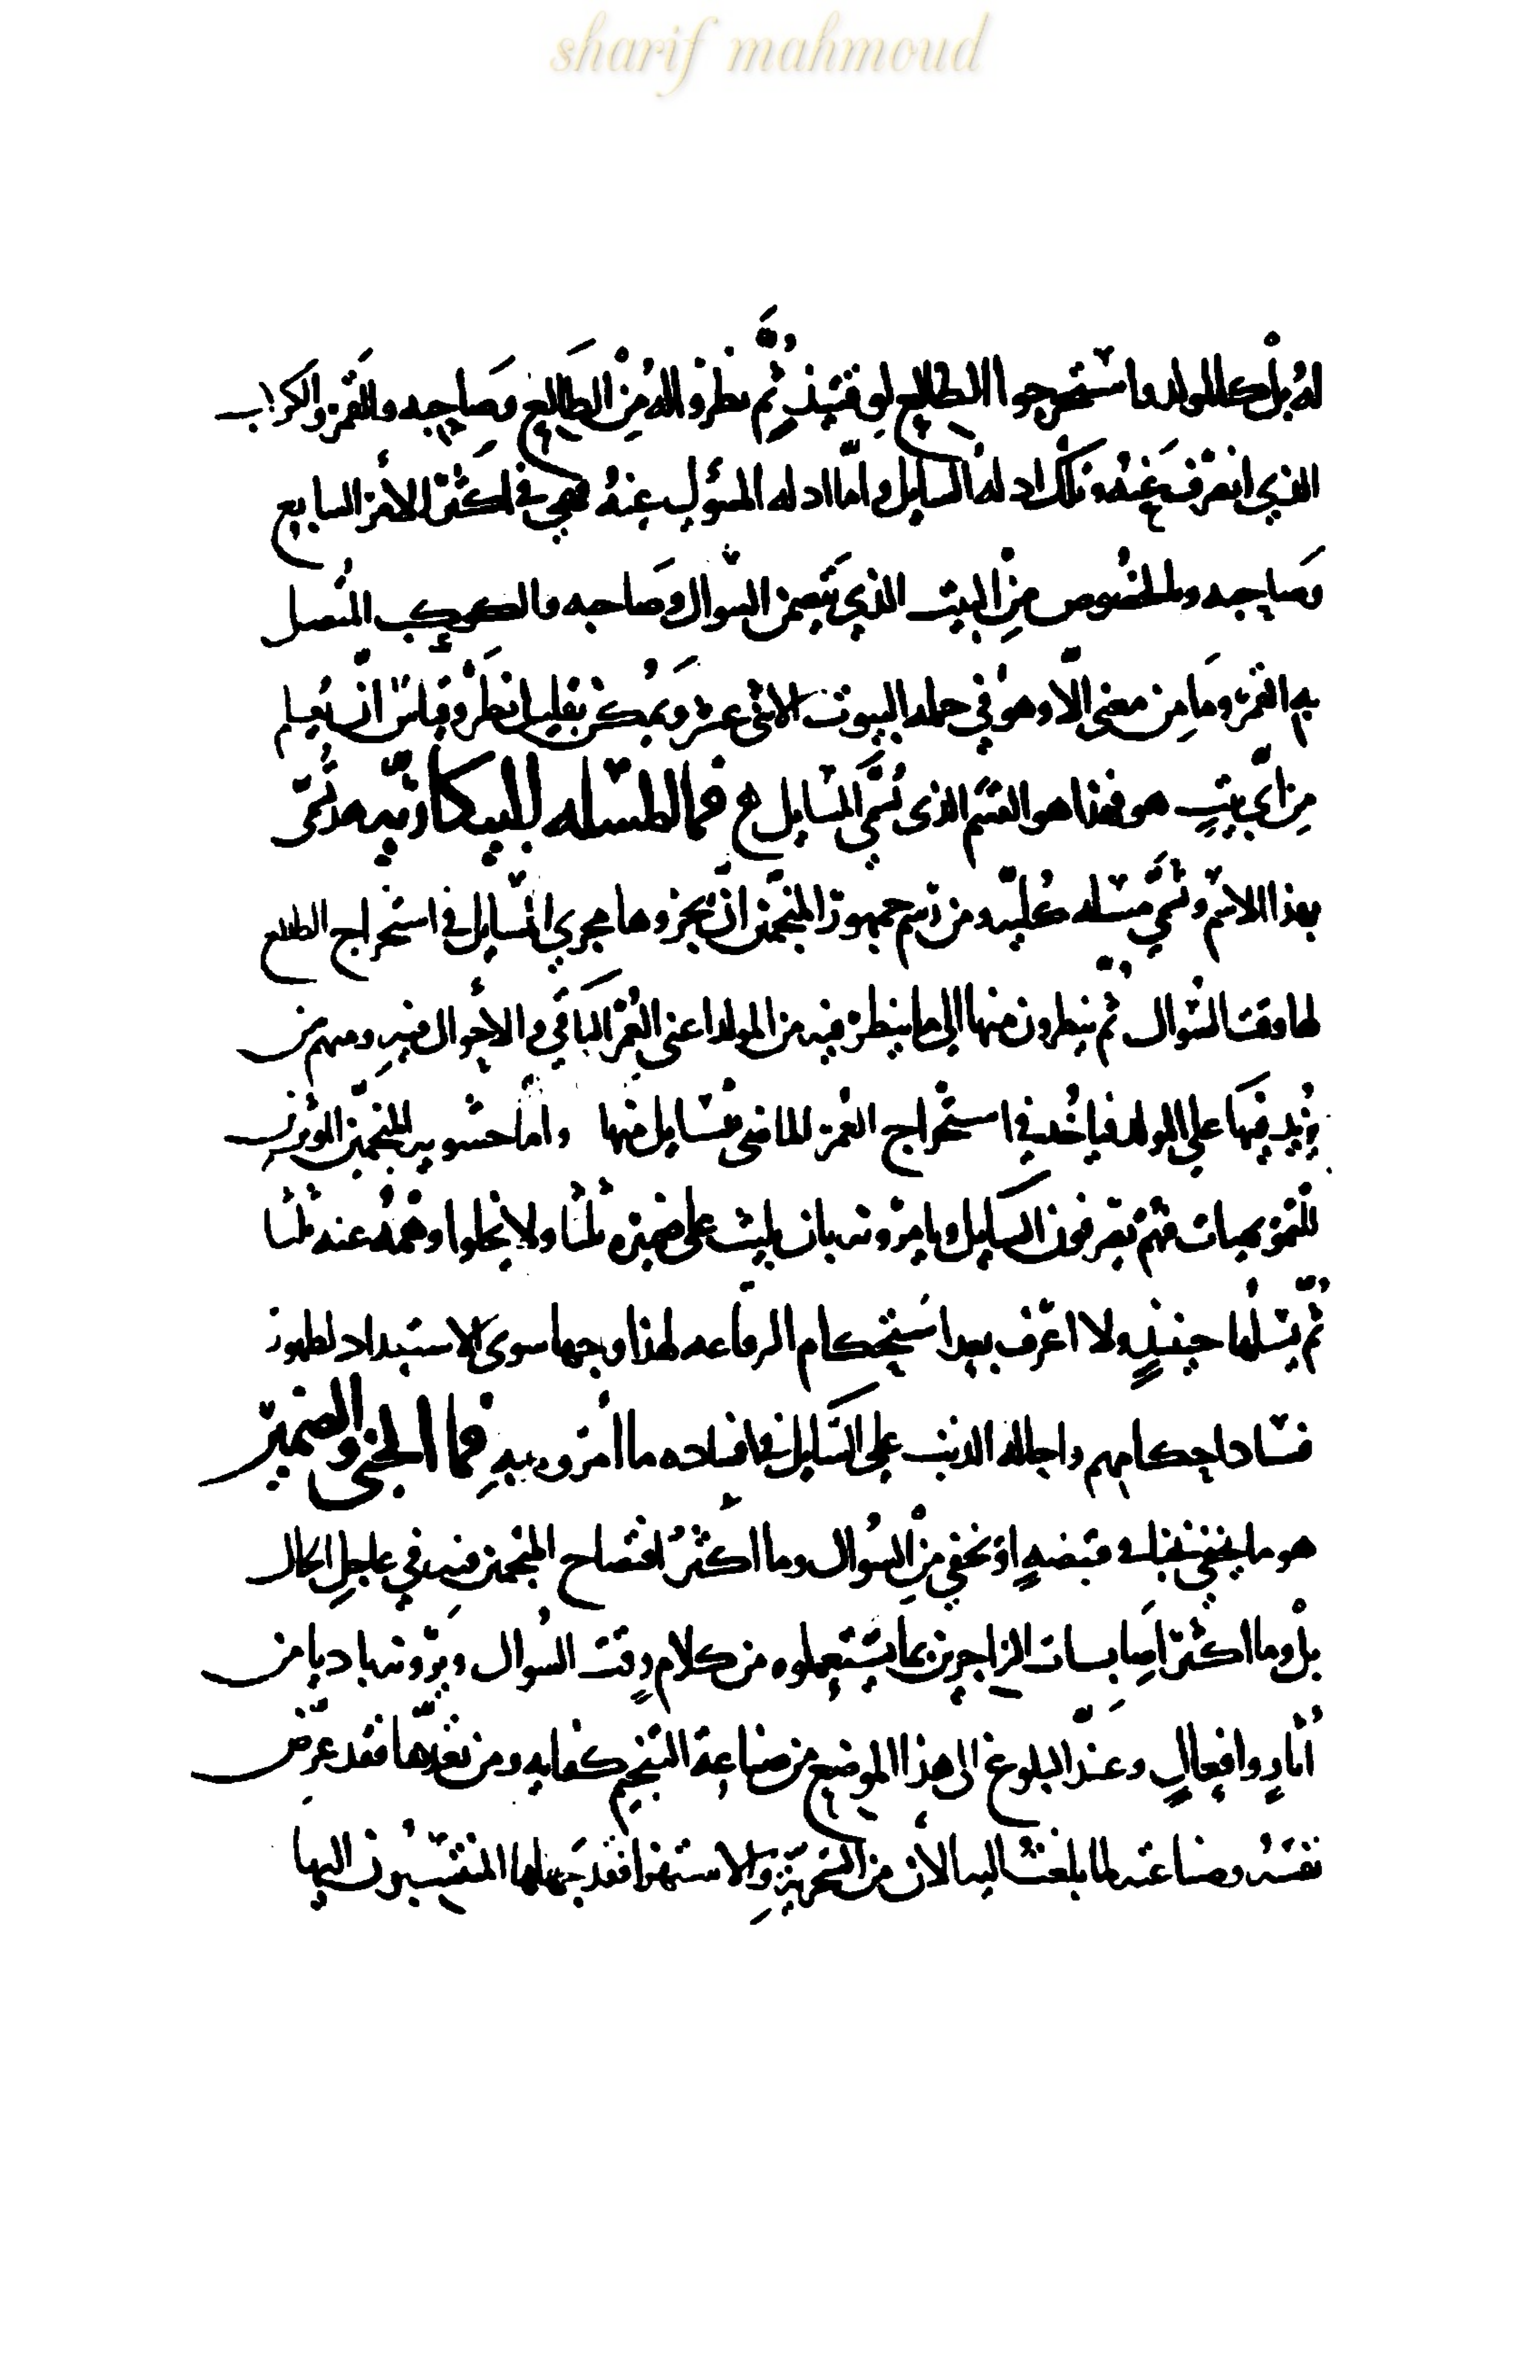 sharif mahmoud
له بل كالمولد واستخرجوا الطالع لوقتئذ ثم نظروا له من الطالع وصاحبه والقمر والكوكب
الذي انصرف عنه وتلك ادله السايل واما ادله المسؤل عنه فهي في اكثر الامر السابع
وصاحبه وبالخصوص من البيت الذي يتضمن السوال وصاحبه والكوكب المتصل
به القمر وما من معنى الا وهو في جمله البيوت الاثنى عشر ويمكن بقليل نظر وقياس ان يعلم
من اي بيت هو فهذا هو القسم الذى يسمى المسايل ع فما المسله البيكارنيه هى تسمى
بهذا الاسم وتسمى مسله كليه ومن رسم جمهور المنجمين ان يجروها مجرى المسايل في استخراج الطالع
لها وقت السوال ثم ينظرون منها الى ما ينظر فيه من المولد اعنى العمر الباقي والاحوال فيه ومنهم من
يزيد فيها على المولد فياخذ في استخراج العمر الماضى بمسايل منها واما حشويه المنجمين المؤثرين
للتمويهات فهم يعرفون السايل ويامرونه بان يلبث على ضميره ثلثا ولا يخلوا وهمه عنه ثلثا
ثم يسلها حينئذ ولا اعرف بعد استحكام الرقاعه لهذا وجها سوى الاستبداد لظهور
فساد احكامهم واحاله الذنب على السايل في افساده ما امروه به فما الخبى والضمير
هو ما يخفى نفيا في قبضه او يخفى من السوال وما اكثر افتضاح المنجمين فيه في عاجل الحال
بل وما اكثر اصابات الزاجرين بما يستعملوه من كلام وقت السوال ويرونه باديا من
اثار وافعال وعند البلوغ الى هذا الموضع من صناعة التنجيم كفايه ومن تعداها فقد عرض
نفسه وصناعته لما بلغت اليه الان من السخرية والاستهزا فقد جهلها المنتسبون اليها